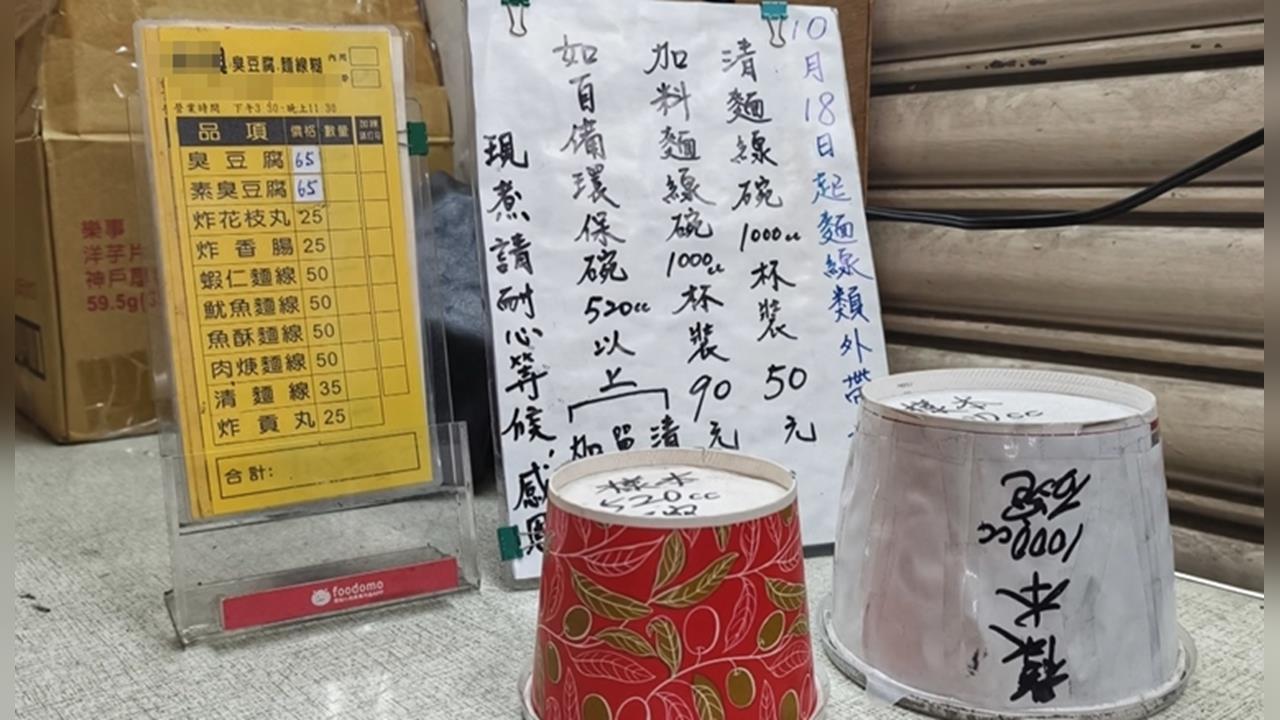 臭豆腐.麵線糊
內用
營業時間 下午3:30-晚上11:30
品項 價格 數量
臭豆腐 65
素臭豆腐 65
炸花枝丸 25
炸香腸 25
蝦仁麵線 50
魷魚麵線 50
魚酥麵線 50
肉焿麵線 50
清麵線 35
炸貢丸 25
合計:
foodomo
樂事
洋芋片
神戶
59.5g
10月18日起麵線類外帶
清麵線碗1000cc杯裝50元
加料麵線碗1000cc杯裝90元
如自備環保碗520cc以上
清
留
加
現煮請耐心等候,感恩
樣本
520cc
樣本
樣本
1000cc
碗